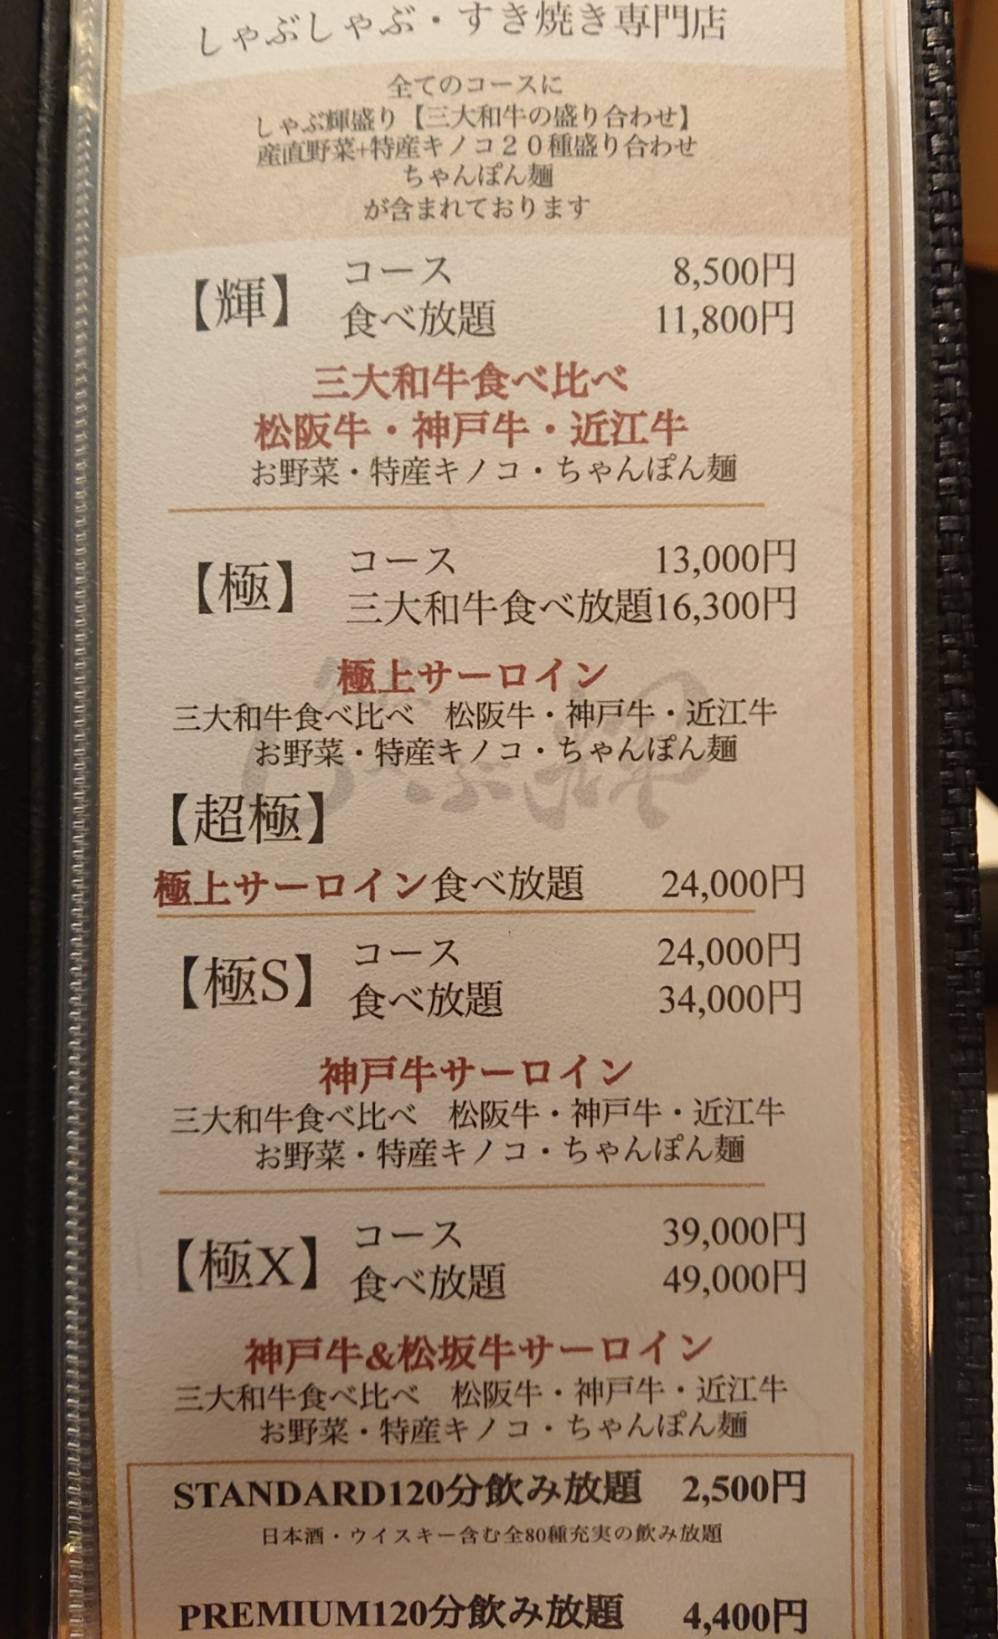 しゃぶしゃぶ・すき焼き専門店
全てのコースに
しゃぶ輝盛り【三大和牛の盛り合わせ】
産直野菜+特産キノコ20種盛り合わせ
ちゃんぽん麺
が含まれております
【輝】 コース 8,500円
食べ放題 11,800円
三大和牛食べ比べ
松阪牛・神戸牛・近江牛
お野菜・特産キノコ・ちゃんぽん麺
【極】 コース 13,000円
三大和牛食べ放題16,300円
極上サーロイン
三大和牛食べ比べ 松阪牛・神戸牛・近江牛
お野菜・特産キノコ・ちゃんぽん麺
【超極】
極上サーロイン食べ放題 24,000円
【極S】 コース 24,000円
食べ放題 34,000円
神戸牛サーロイン
三大和牛食べ比べ 松阪牛・神戸牛・近江牛
お野菜・特産キノコ・ちゃんぽん麺
【極X】 コース 39,000円
食べ放題 49,000円
神戸牛&松坂牛サーロイン
三大和牛食べ比べ 松阪牛・神戸牛・近江牛
お野菜・特産キノコ・ちゃんぽん麺
STANDARD120分飲み放題 2,500円
日本酒・ウイスキー含む全80種充実の飲み放題
PREMIUM120分飲み放題 4,400円